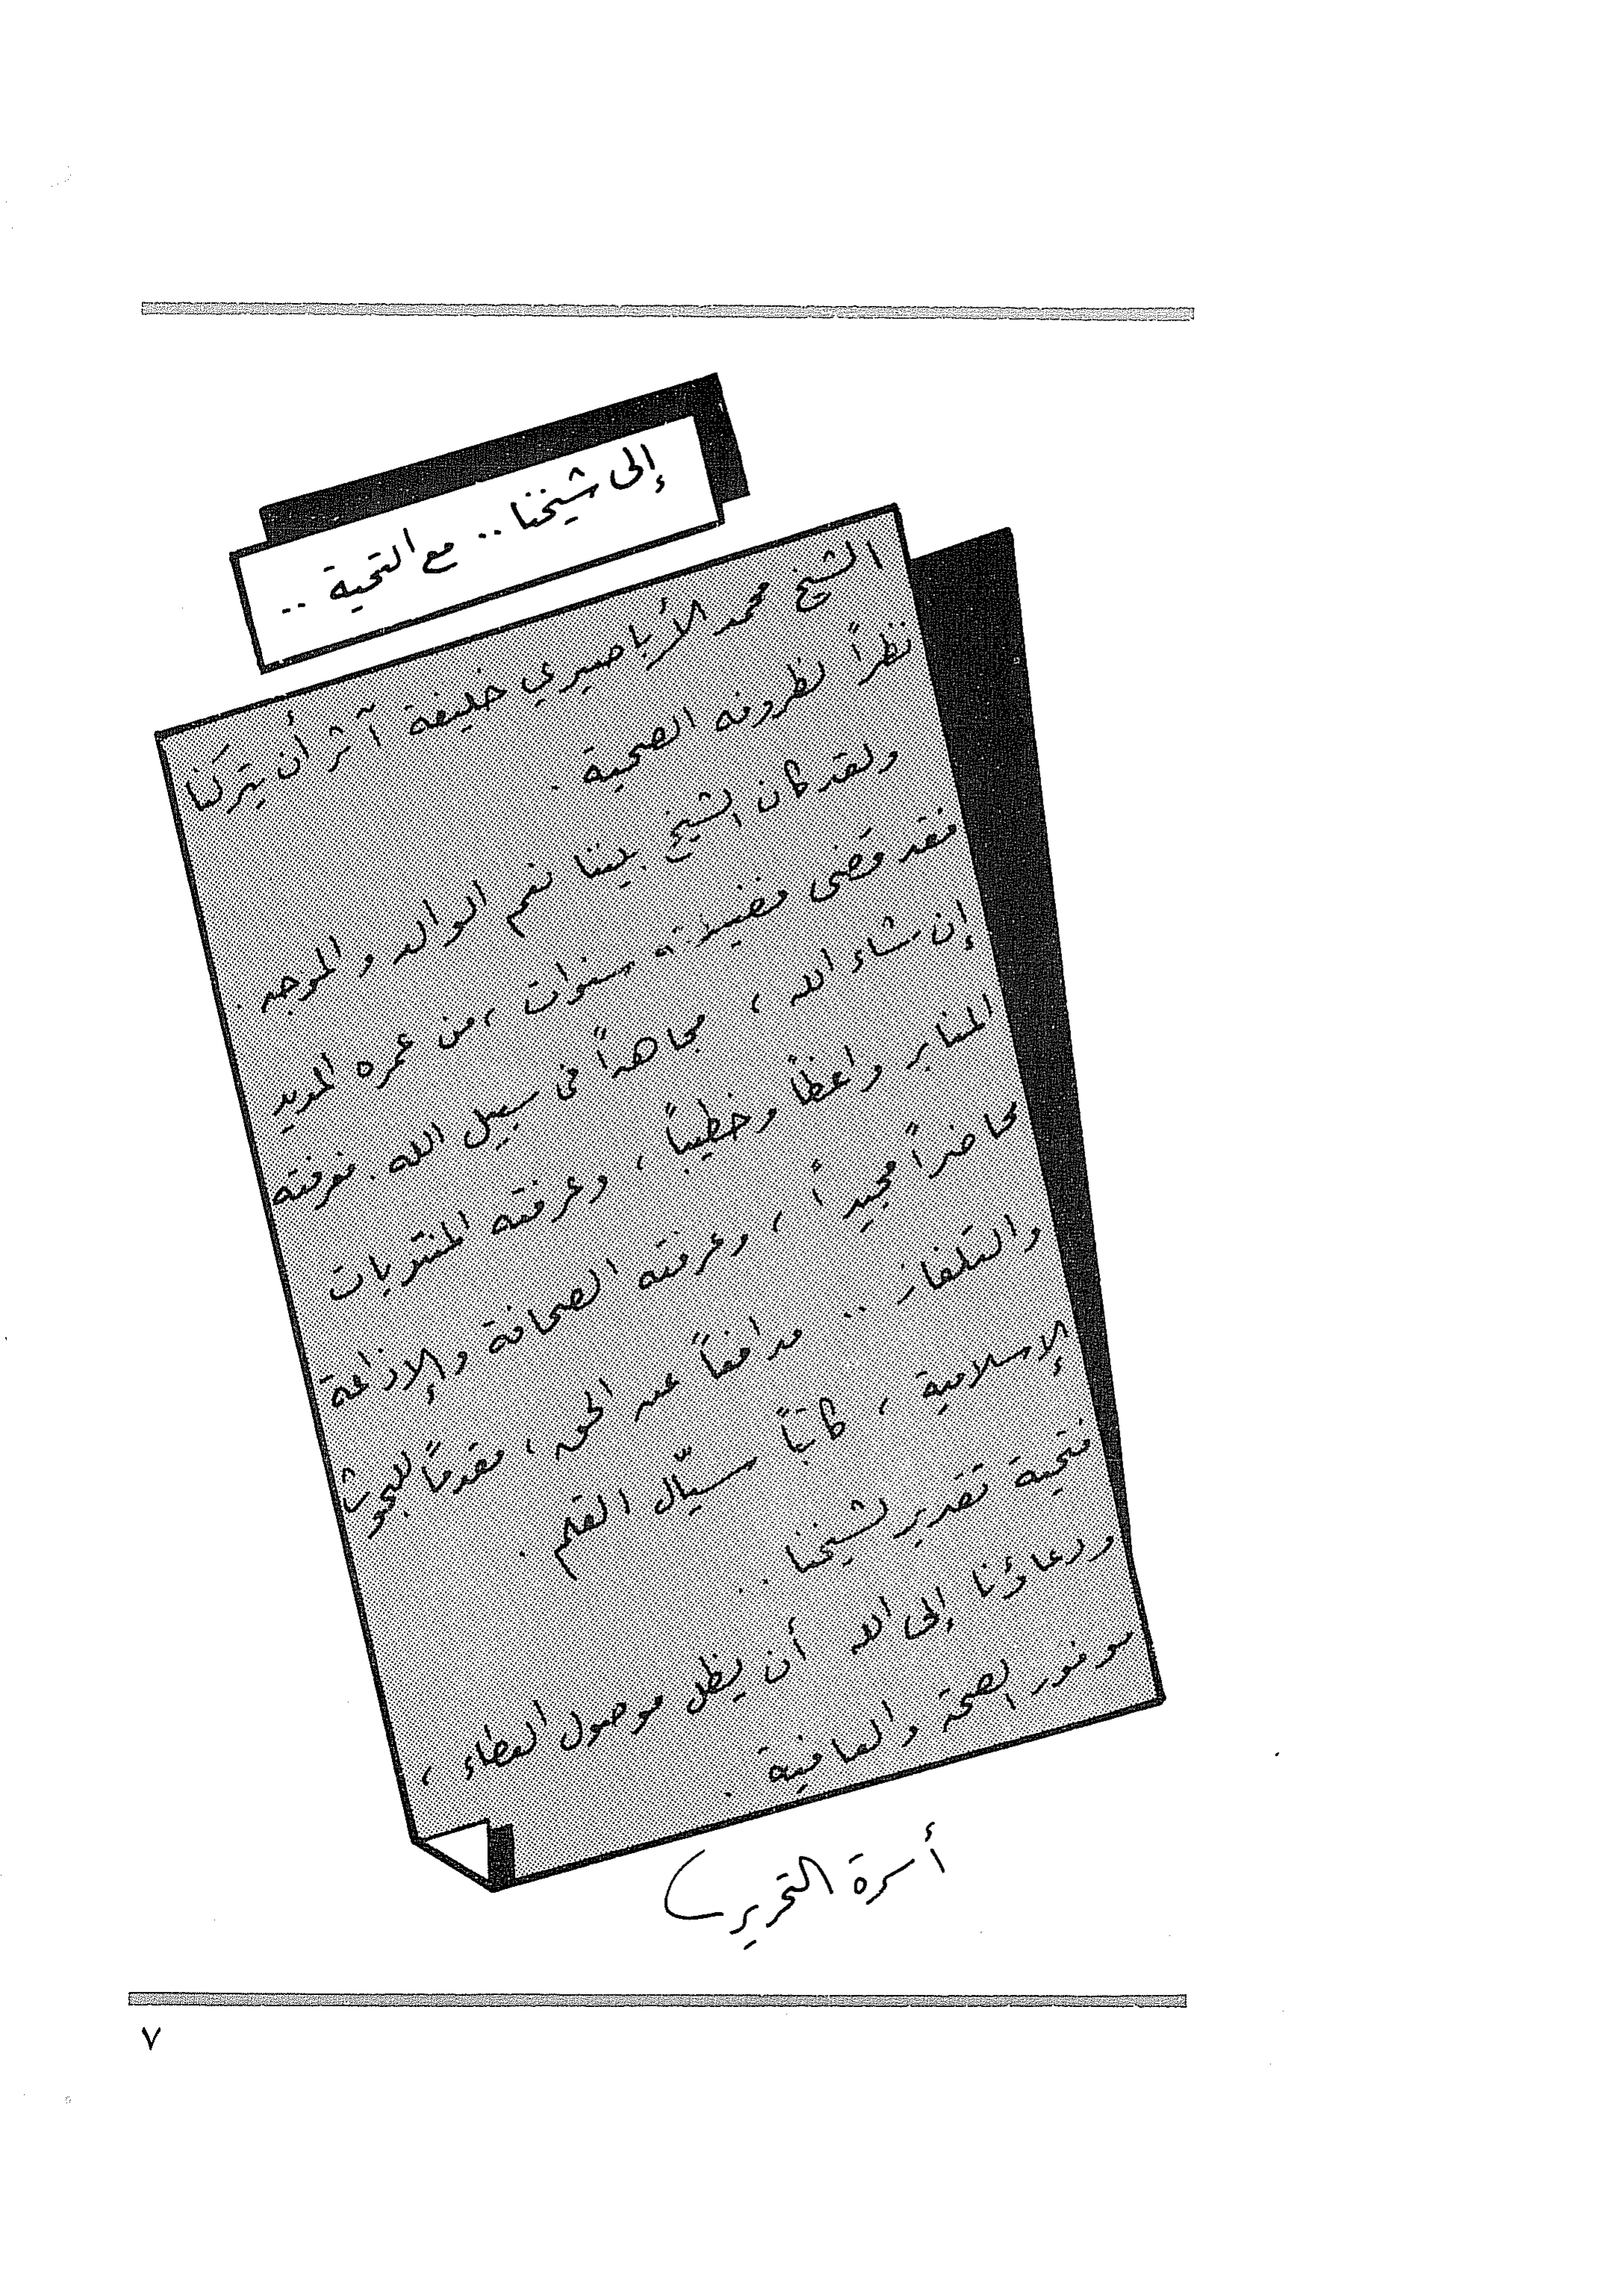 إلى شيخنا .. مع التحية ..
الشيخ محمد الأباصيري خليفة آثر أن يتركَنا
نظراً لظروفه الصحية .
ولقد كان الشيخ بيننا نعم الوالد والموجه .
فقد قضى فضيلته سنوات ، من عمره المديد
إن شاء الله ، مجاهداً في سبيل الله . فعرفته
المنابر واعظاً وخطيباً ، وعرفته المنتديات
محاضراً مجيداً ، وعرفته الصحافة والإذاعة
والتلفاز .. مدافعاً عن الحق ، مقدماً للبحوث
الإسلامية ، كاتباً سيّال القلم .
فتحية تقدير لشيخنا ..
ودعاؤنا إلى الله أن يظل موصول العطاء ،
موفور الصحة والعافية .
أسرة التحرير
٧